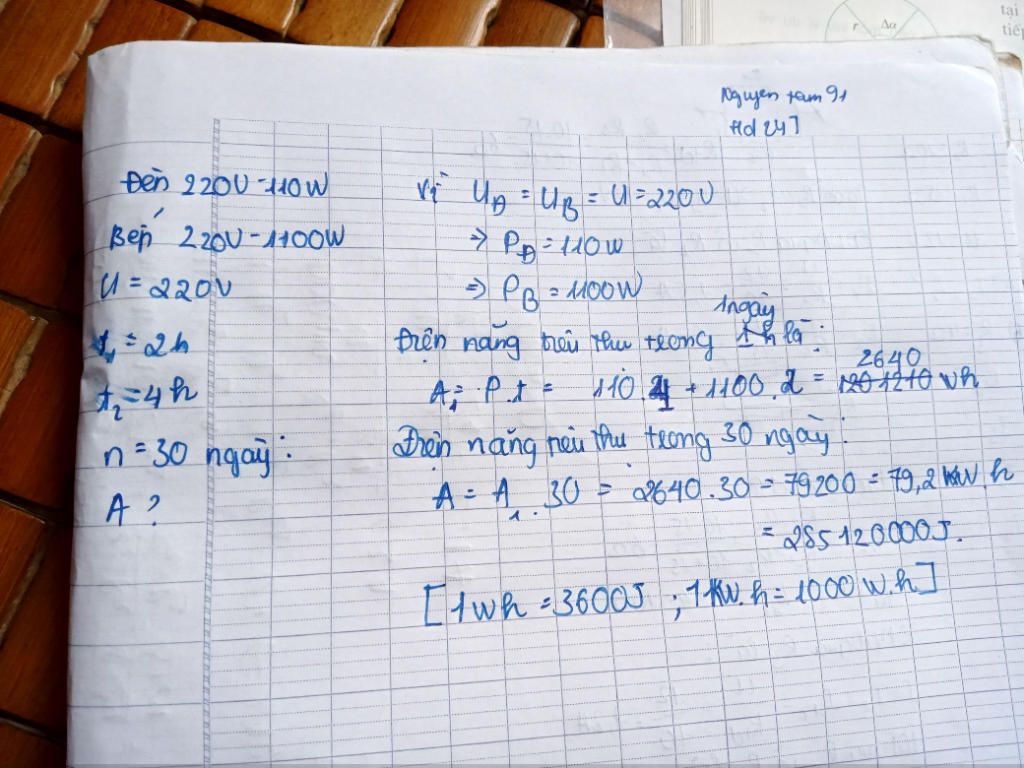 tại
tiếp
r Δα
Nguyen tam 91
Hd 247
Đèn 220V-110W
Bếp 220V-1100W
U = 220V
t₁ = 2h
t₂ = 4h
n = 30 ngày:
A ?
Vì U_Đ = U_B = U = 220V
=> P_Đ = 110W
=> P_B = 1100W
1ngày
Điện năng tiêu thu trong 1h là:
2640
A₁ = P.t = 110.4 + 1100.2 = 120 1210 Wh
Điện năng tiêu thu trong 30 ngày:
A = A₁.30 = 2640.30 = 79200 = 79,2 kW.h
= 285120000J.
[1Wh = 3600J ; 1KW.h = 1000 W.h]